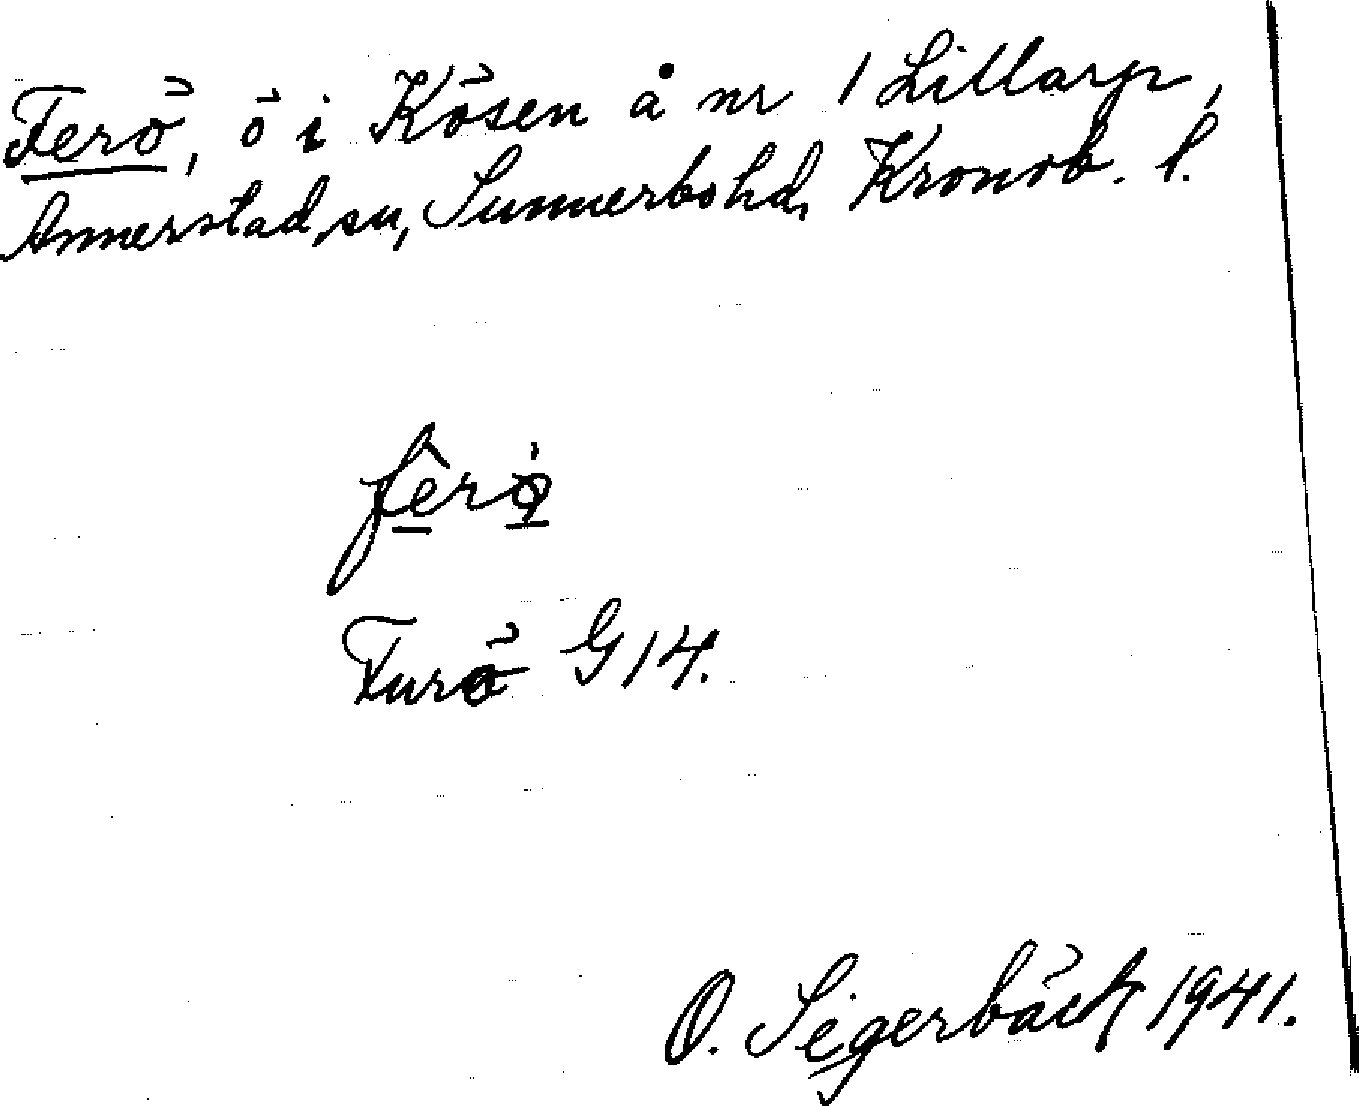 Ferö, ö i Kösen å nr 1 Lillarp,
Annerstad sn, Sunnerbo hd, Kronob. l.
ferö
Furö G 14.
O. Segerbäck 1941.